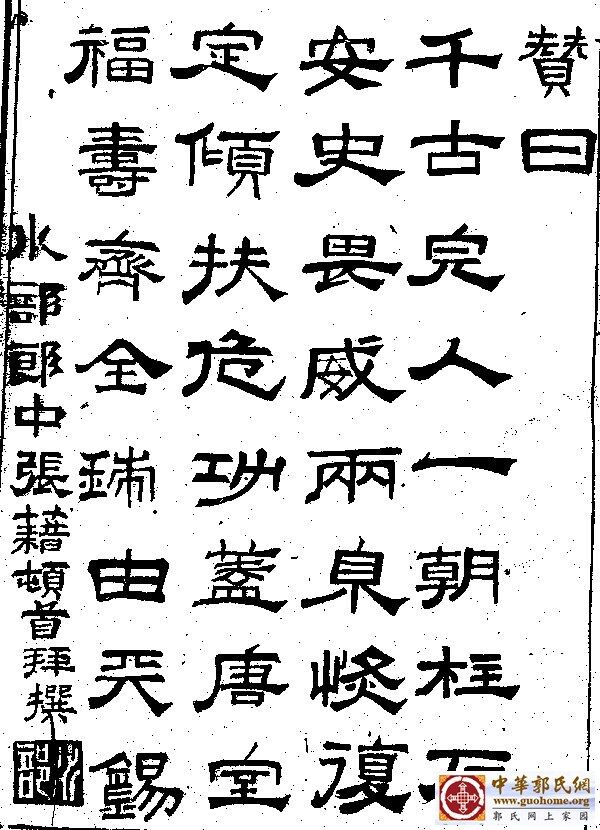 贊曰
千古完人一朝柱石
安史畏威兩京恢復
定傾扶危功蓋唐室
福壽齊全由天錫
水部郎中張藉頓首拜撰
中華郭氏網
www.guohome.org
郭氏网上家园